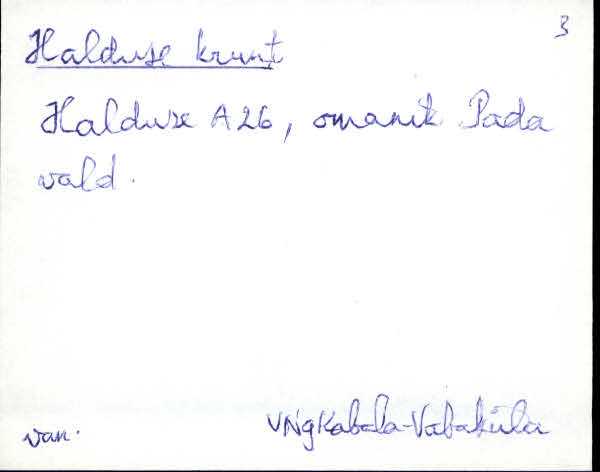 3
Halduse krunt
Halduse A26, omanik Pada
vald.
van.
VNg Kabala-Vabaküla